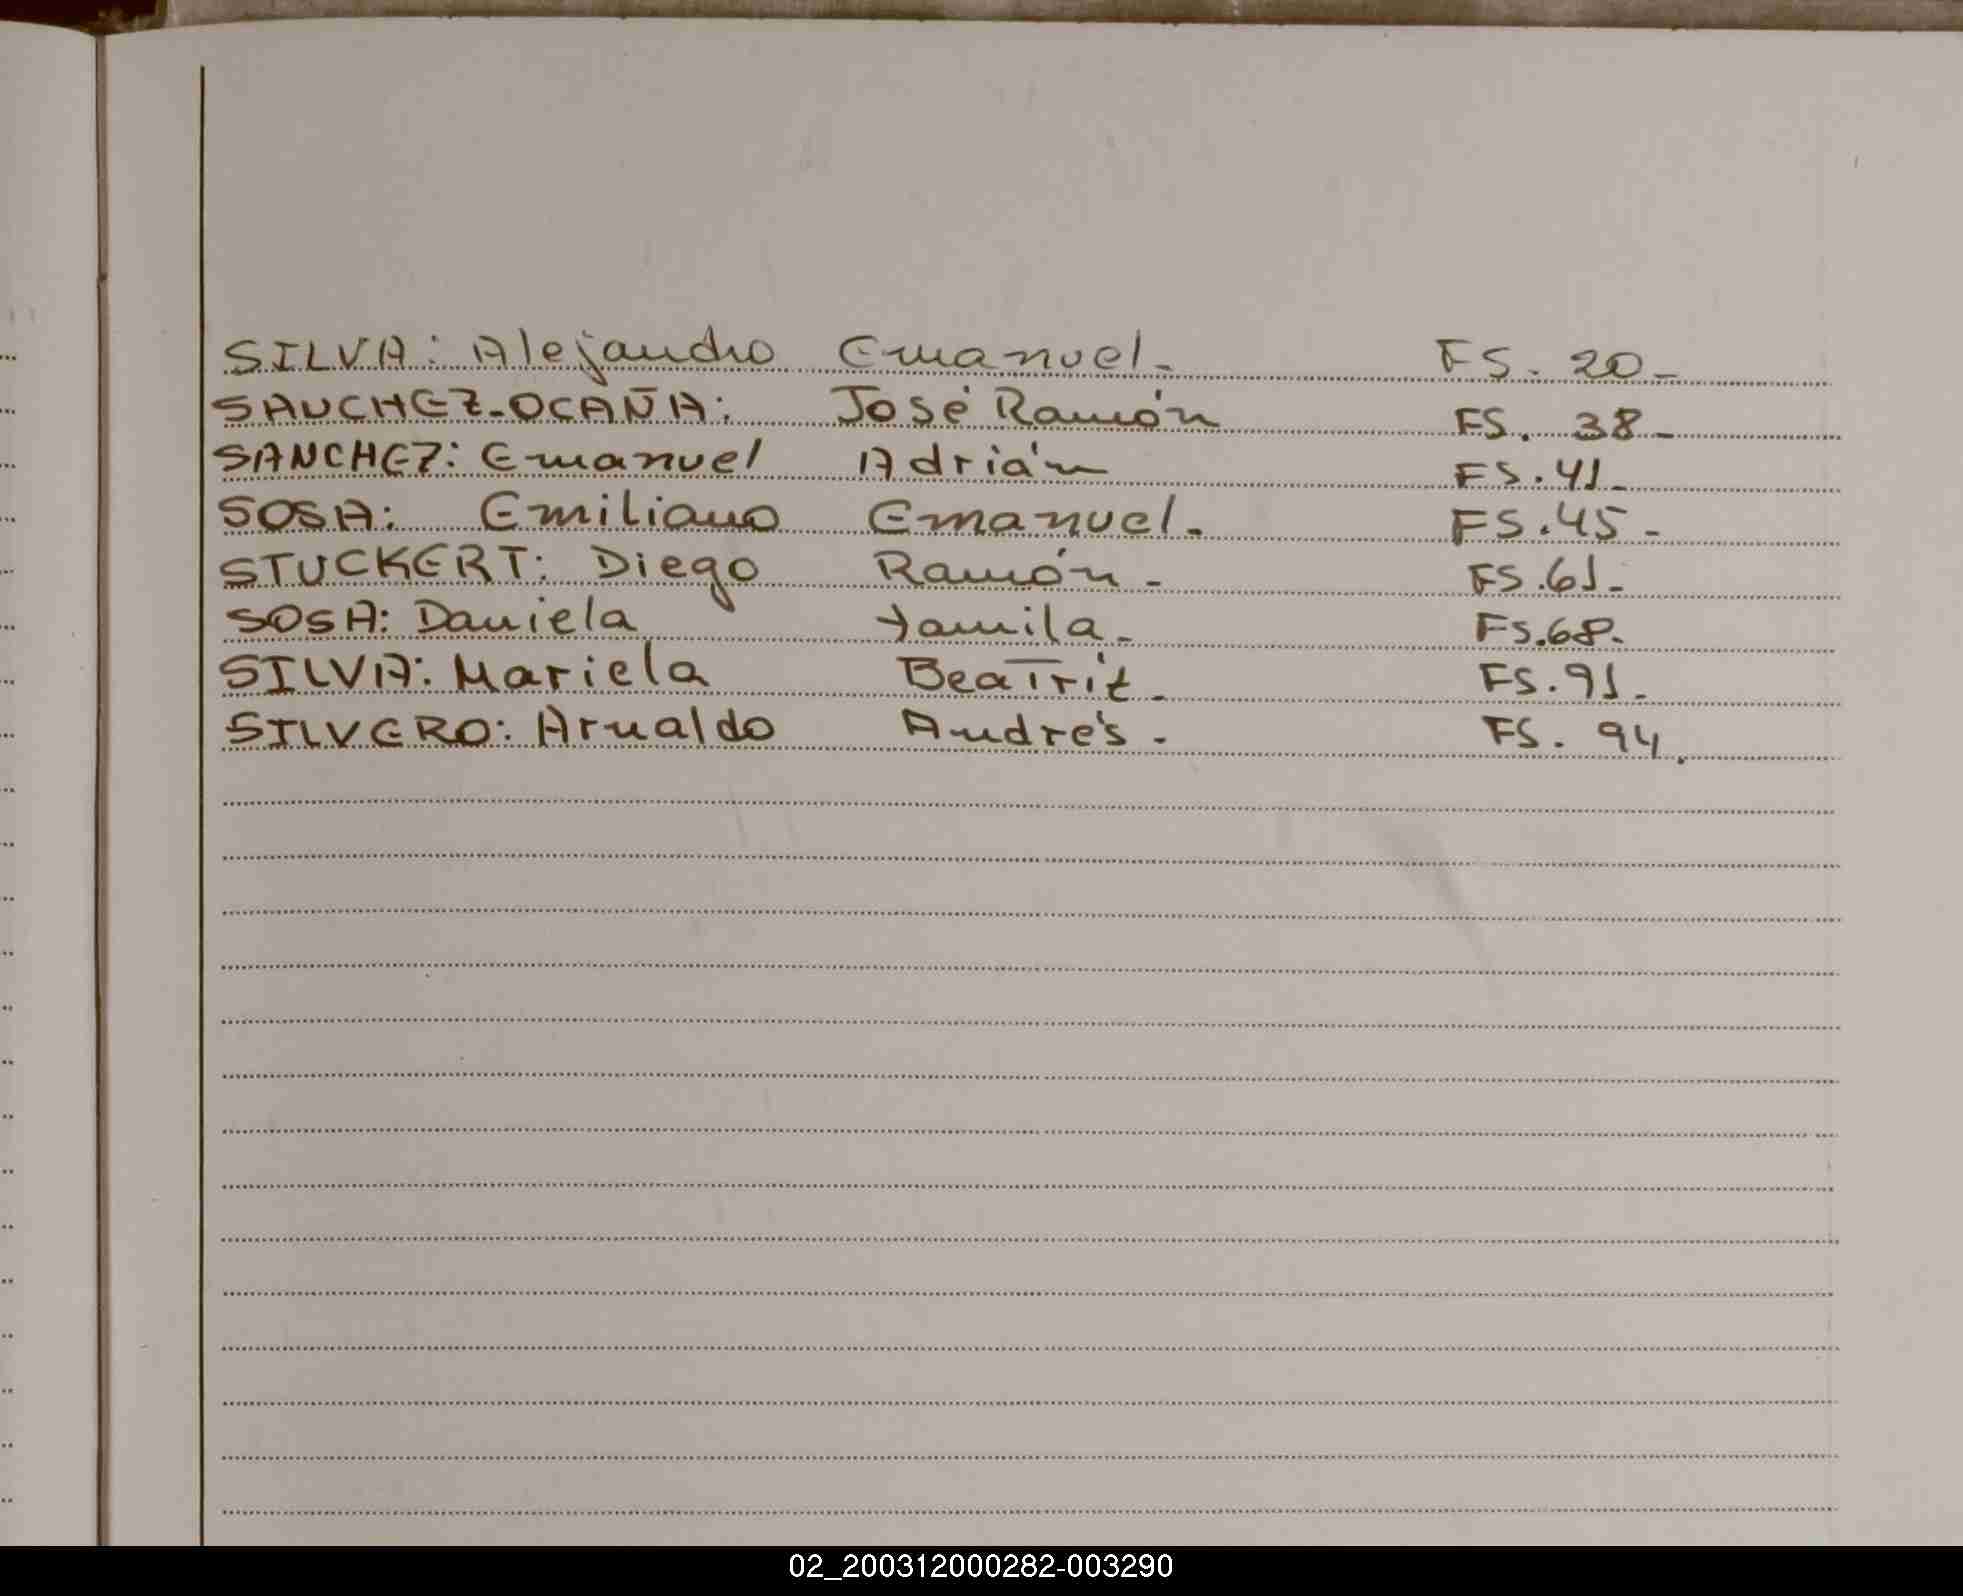 SILVA: Alejandro Emanuel. FS. 20-
SANCHEZ-OCAÑA: José Ramón FS. 38-
SANCHEZ: Emanuel Adrián FS. 41-
SOSA: Emiliano Emanuel. FS. 45-
STUCKERT: Diego Ramón- FS. 61-
SOSA: Daniela Yamila- FS. 68.
SILVA: Mariela Beatriz- FS. 91-
SILVERO: Arnaldo Andrés. FS. 94.
02_200312000282-003290